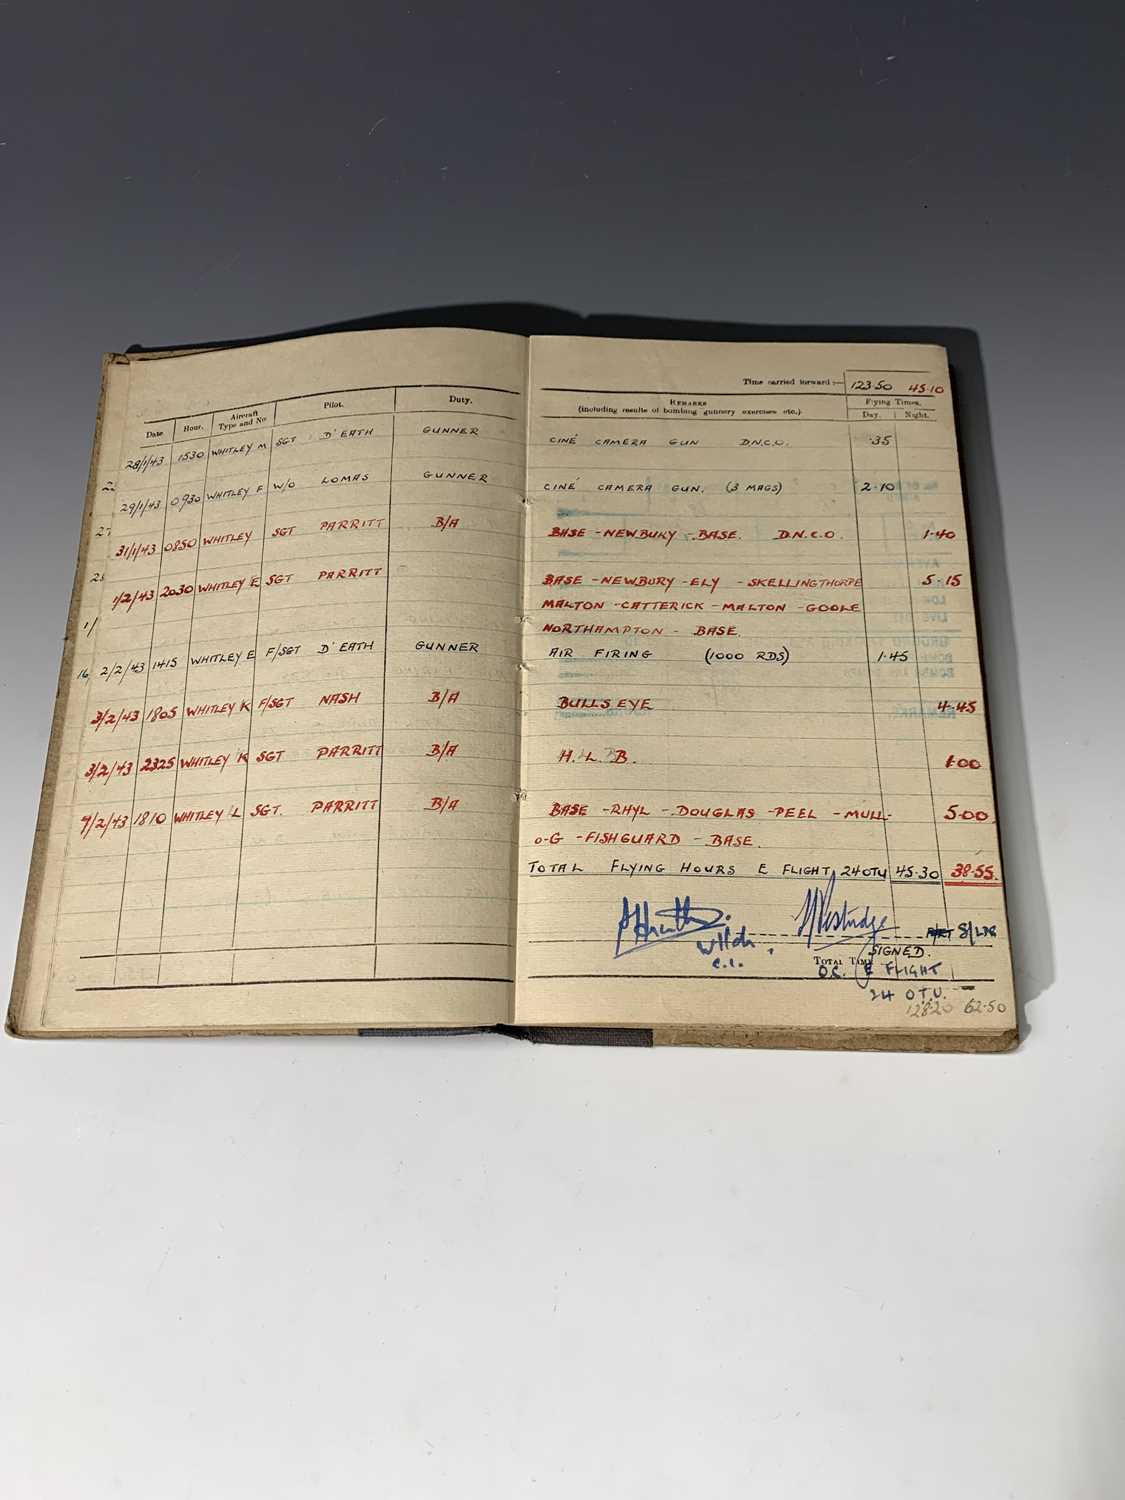 Time carried forward :— 123·50 45·10
Date Hour. Aircraft Type and No Pilot. Duty. REMARKS (including results of bombing gunnery exercises etc.) Flying Times. Day. Night.
28/1/43 1530 WHITLEY M SGT D'EATH GUNNER CINÉ CAMERA GUN D.N.C.O. ·35
29/1/43 0930 WHITLEY F W/O LOMAS GUNNER CINÉ CAMERA GUN. (3 MAGS) 2·10
31/1/43 0850 WHITLEY SGT PARRITT B/A BASE - NEWBURY - BASE. D.N.C.O. 1·40
1/2/43 2030 WHITLEY E SGT PARRITT BASE - NEWBURY - ELY - SKELLINGTHORPE 5·15
MALTON - CATTERICK - MALTON - GOOLE
NORTHAMPTON - BASE.
2/2/43 1415 WHITLEY E F/SGT D'EATH GUNNER AIR FIRING (1000 RDS) 1·45
3/2/43 1805 WHITLEY K F/SGT NASH B/A BULLSEYE 4·45
3/2/43 2325 WHITLEY K SGT PARRITT B/A H.L.B. 1·00
7/2/43 1810 WHITLEY L SGT. PARRITT B/A BASE - RHYL - DOUGLAS - PEEL - MULL-
O-G - FISHGUARD - BASE. 5·00
TOTAL FLYING HOURS E FLIGHT 24 OTU 45·30 38·55.
S/LDR
C.I.
SIGNED.
TOTAL TIME
O.C. E FLIGHT
24 O.T.U.
128·20 62·50